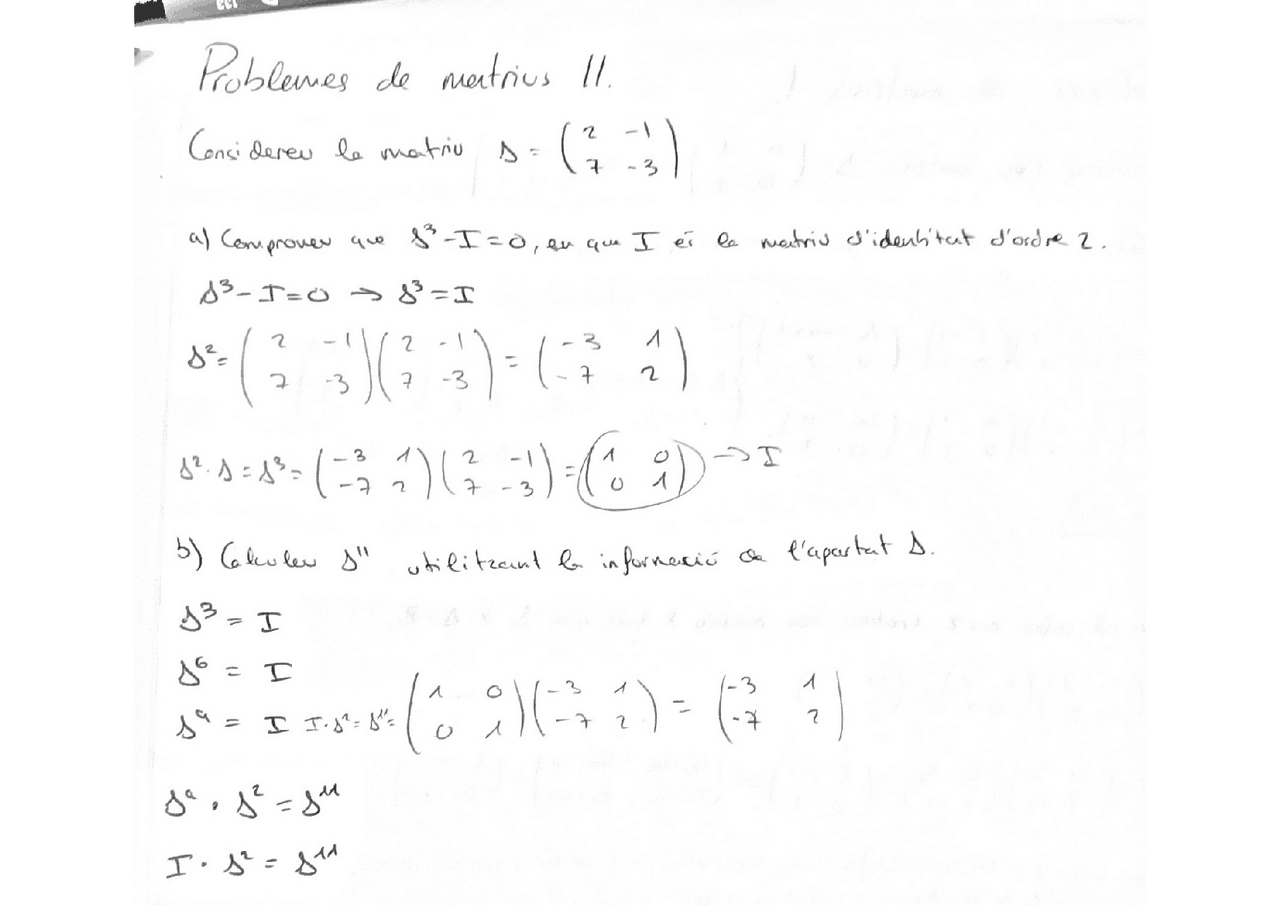 Problemes de matrius II.
Considereu la matriu A = (2 -1; 7 -3)
a) Comproveu que A³ - I = 0, en que I és la matriu d'identitat d'ordre 2.
A³ - I = 0 → A³ = I
A² = (2 -1; 7 -3)(2 -1; 7 -3) = (-3 1; -7 2)
A² · A = A³ = (-3 1; -7 2)(2 -1; 7 -3) = (1 0; 0 1) → I
b) Calculeu A¹¹ utilitzant la informació de l'apartat A.
A³ = I
A⁶ = I
A⁹ = I I · A² = A¹¹ = (1 0; 0 1)(-3 1; -7 2) = (-3 1; -7 2)
A⁹ · A² = A¹¹
I · A² = A¹¹